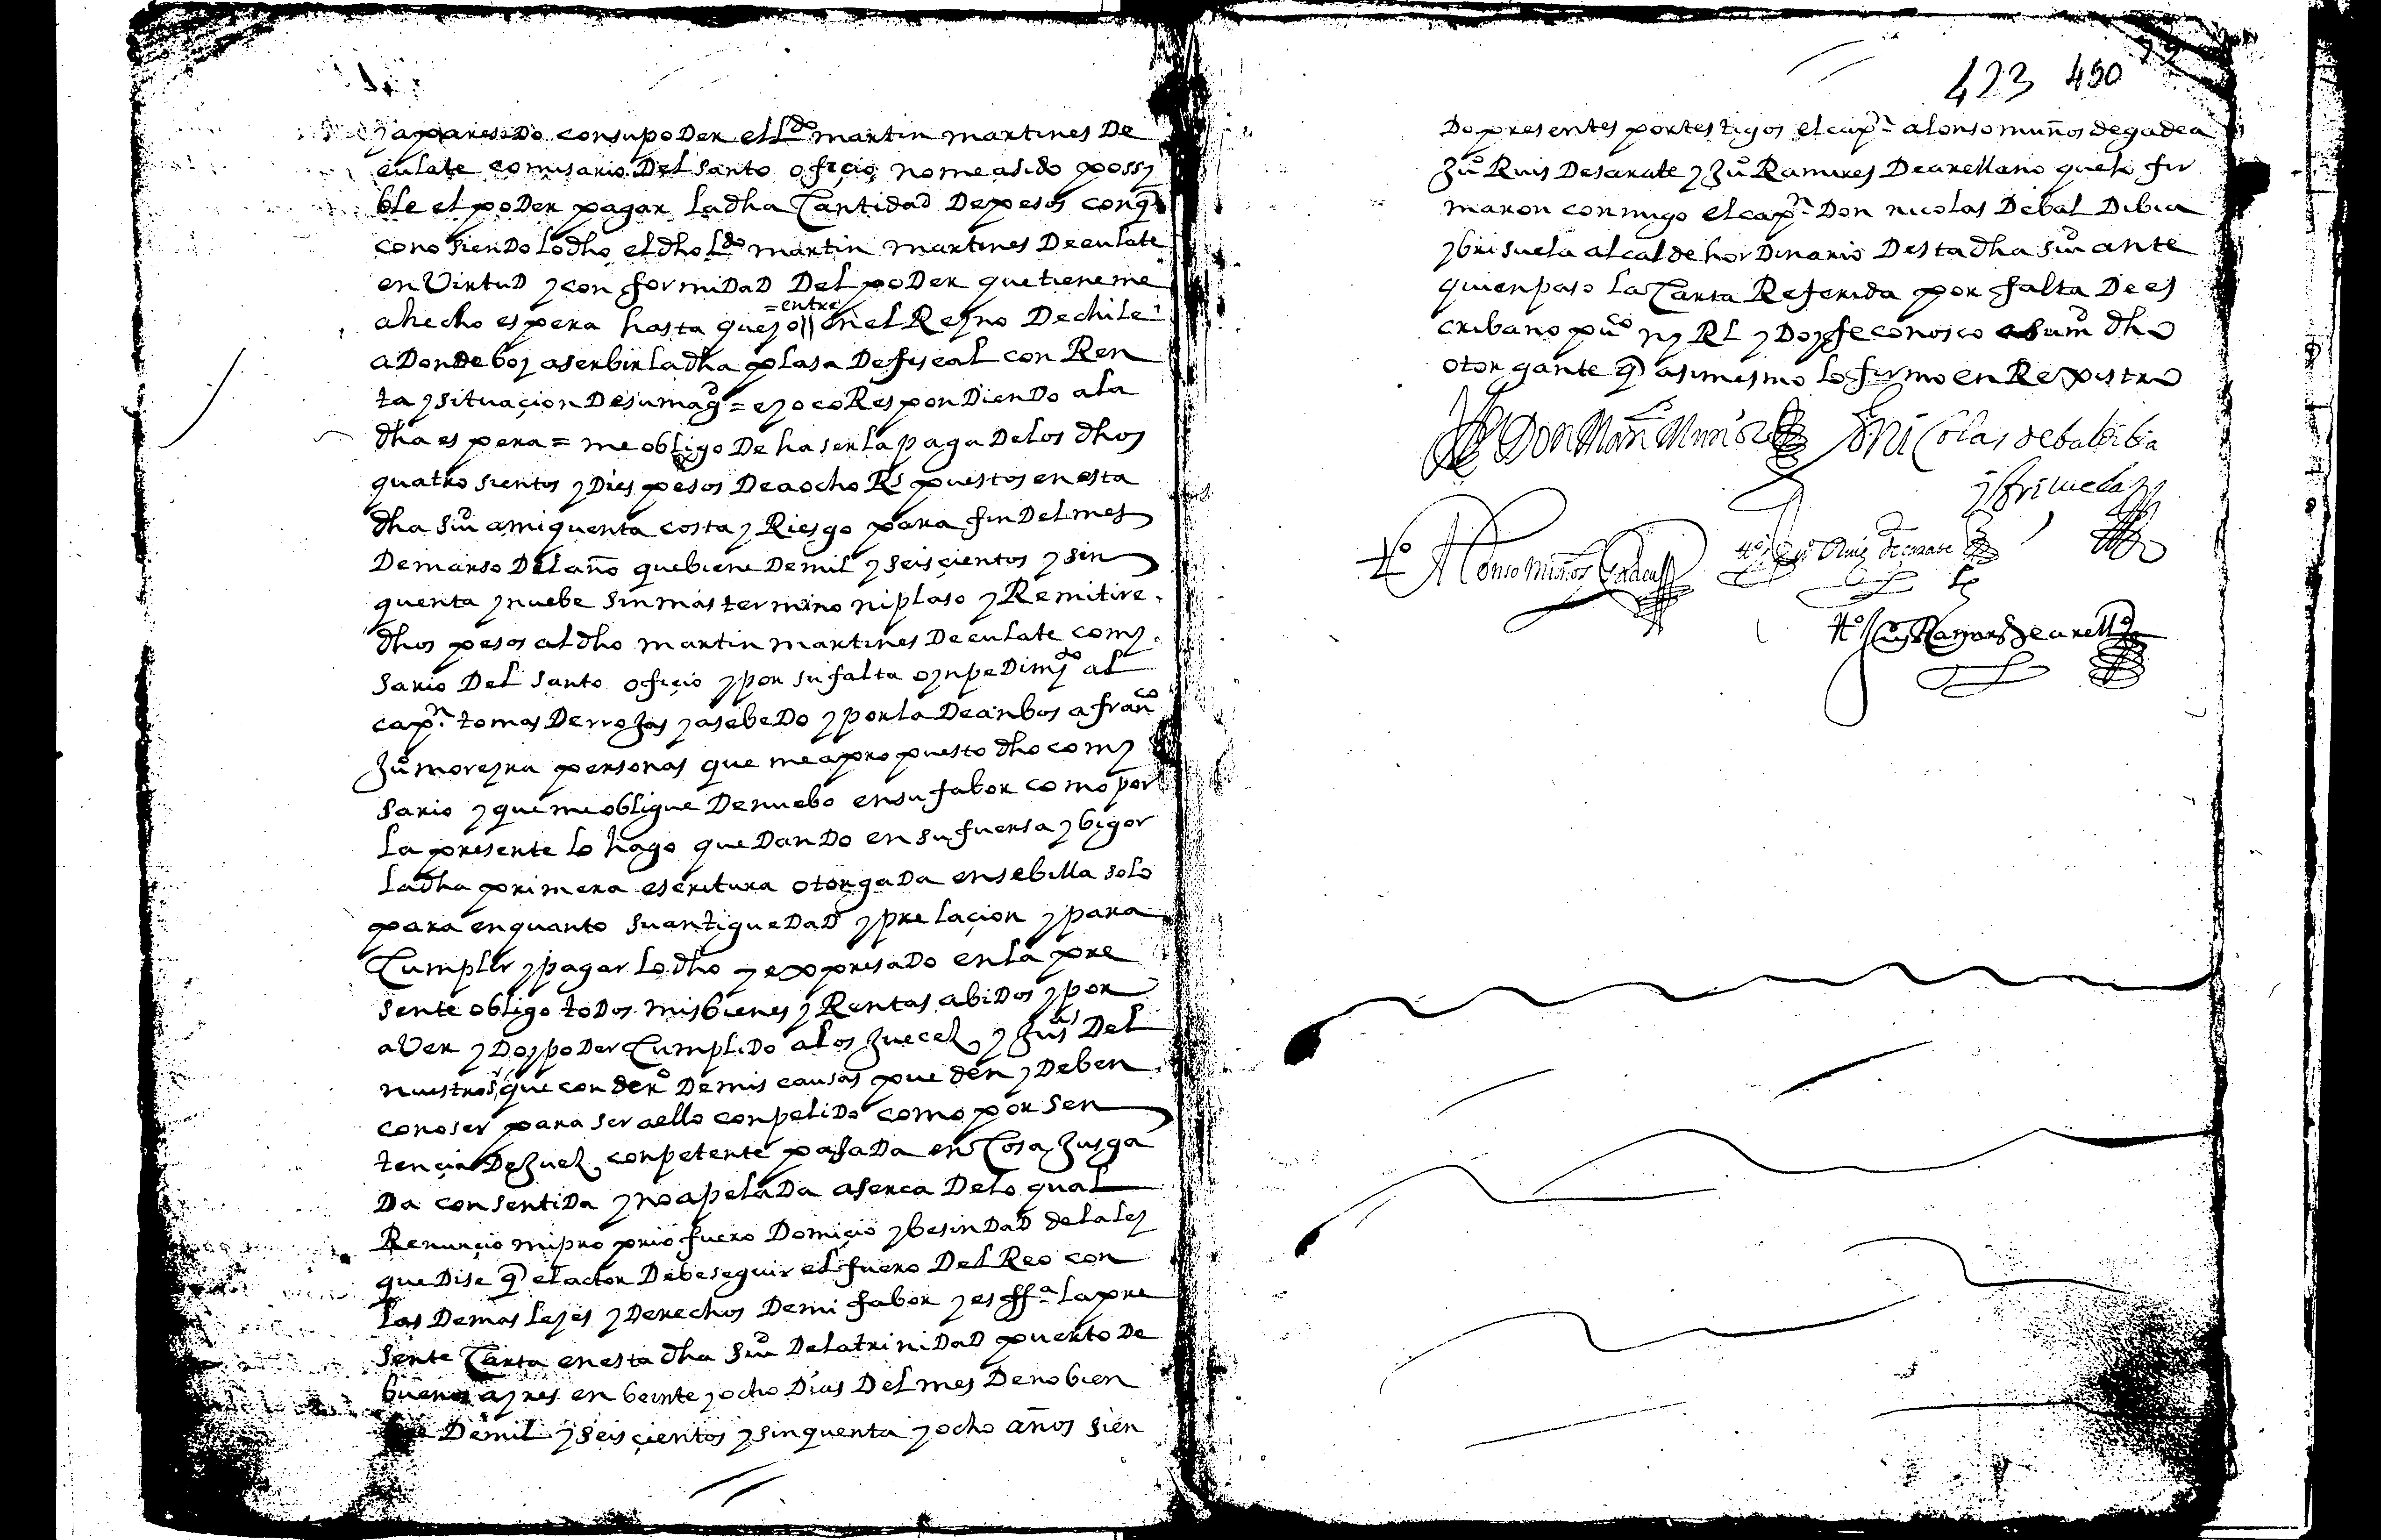 y aparesido con su poder el Ldo martin martines De
eulate comisario Del santo ofiçio no me a sido possy
ble el poDer pagar la dha Cantidad De pesos con q
conosienDo lo dho el dho Ldo martin martines De eulate
en VirtuD y conformiDaD Del poDer que tiene me
=entre
a hecho espera hasta que yo || en el Reyno De chile
aDonde boy a serbir la dha plasa De fiscal con Ren
ta y situaçion De su magd = e yo coRespondienDo a la
dha espera = me obligo De haser la paga De los dhos
quatrosientos y Dies pesos De a ocho Rs puestos en esta
dha siud a mi quenta costa y Riesgo para fin Del mes
De marso Del año que biene De mil y seisçientos y sin
quenta y nuebe sin mas termino ni plaso y Remitire
dhos pesos al dho martin martines De eulate comy
sario Del santo ofiçio y por su falta o ynpeDimto al
capn tomas De rrojas y asebeDo y por la De anbos a franco
Juo moreyra personas que me a propuesto dho comy
sario y que me obligue De nuebo en su fabor como por
la presente lo hago queDanDo en su fuersa y bigor
la dha primera escritura otorgaDa en sebilla solo
para en quanto su antigueDaD y prelaçion y para
Cumplir y pagar lo dho y expresaDo en la pre
sente obligo toDos mis bienes y Rentas abiDos y por
aVer y Doy poDer CumpliDo a los Jueces y Jusas Del
nuestro sr que con dero De mis causas pueden y Deben
conoser para ser a ello conpeliDo como por sen
tençia De Juez conpetente pasaDa en Cosa Jusga
Da consentiDa y no apelaDa aserca De lo qual
Renunçio mi proprio fuero Domiçio y besinDaD de la ley
que Dise q el actor Debe seguir el fuero Del Reo con
las Demas leyes y Derechos De mi fabor y es ffa la pre
sente Carta en esta dha siud De la triniDaD puerto De
buenos ayres en beinte y ocho Dias Del mes De nobien
De mil y seisçientos y sinquenta y ocho años sien
423 450
Do presentes por testigos el capn alonso muños de gadea
Juo Ruis De sarate y Juo Ramires De arellano que lo fir
maron conmigo el capn Don nicolas De bal Dibia
y brisuela alcalde horDinario Desta dha siud ante
quien paso la Carta Referida por falta De es
cribano puco ny Rl y Doy fe conosco al dho
otorgante q asimesmo lo firmo en Rexistro
Don Manl Muños Don nicolas de baldibia
y brisuela
to Alonso muños Gadea to Juo Ruiz de sarate
to Juo Ramires de arello